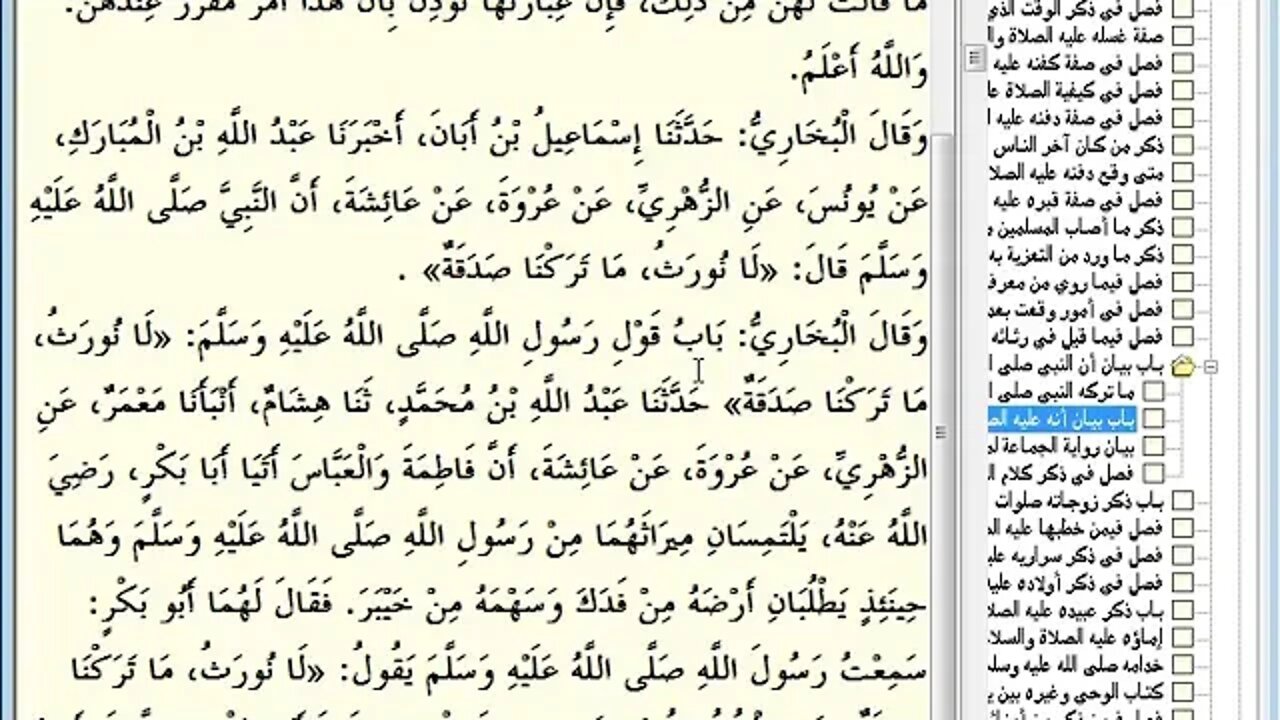 ما قالت لهن من ذلك، فإن عبارتها تؤذن بأن هذا أمر مقرر عندهن.
وَاللَّهُ أَعْلَمُ.
وَقَالَ الْبُخَارِيُّ: حَدَّثَنَا إِسْمَاعِيلُ بْنُ أَبَانَ، أَخْبَرَنَا عَبْدُ اللَّهِ بْنُ الْمُبَارَكِ،
عَنْ يُونُسَ، عَنِ الزُّهْرِيِّ، عَنْ عُرْوَةَ، عَنْ عَائِشَةَ، أَنَّ النَّبِيَّ صَلَّى اللَّهُ عَلَيْهِ
وَسَلَّمَ قَالَ: «لَا نُورَثُ، مَا تَرَكْنَا صَدَقَةٌ» .
وَقَالَ الْبُخَارِيُّ: بَابُ قَوْلِ رَسُولِ اللَّهِ صَلَّى اللَّهُ عَلَيْهِ وَسَلَّمَ: «لَا نُورَثُ،
مَا تَرَكْنَا صَدَقَةٌ» حَدَّثَنَا عَبْدُ اللَّهِ بْنُ مُحَمَّدٍ، ثَنَا هِشَامٌ، أَنْبَأَنَا مَعْمَرٌ، عَنِ
الزُّهْرِيِّ، عَنْ عُرْوَةَ، عَنْ عَائِشَةَ، أَنَّ فَاطِمَةَ وَالْعَبَّاسَ أَتَيَا أَبَا بَكْرٍ، رَضِيَ
اللَّهُ عَنْهُ، يَلْتَمِسَانِ مِيرَاثَهُمَا مِنْ رَسُولِ اللَّهِ صَلَّى اللَّهُ عَلَيْهِ وَسَلَّمَ وَهُمَا
حِينَئِذٍ يَطْلُبَانِ أَرْضَهُ مِنْ فَدَكَ وَسَهْمَهُ مِنْ خَيْبَرَ. فَقَالَ لَهُمَا أَبُو بَكْرٍ:
سَمِعْتُ رَسُولَ اللَّهِ صَلَّى اللَّهُ عَلَيْهِ وَسَلَّمَ يَقُولُ: «لَا نُورَثُ، مَا تَرَكْنَا
فصل في ذكر الوقت الذي
صفة غسله عليه الصلاة وال
فصل في صفة كفنه عليه
فصل في كيفية الصلاة عل
فصل في صفة دفنه عليه ا
ذكر من كان آخر الناس
متى وقع دفنه عليه الصلا
فصل في صفة قبره عليه
ذكر ما أصاب المسلمين م
ذكر ما ورد من التعزية به
فصل فيما روي من معرف
فصل في أمور وقعت بعد
فصل فيما قيل في رثائه
باب بيان أن النبي صلى ا
ما تركه النبي صلى ا
باب بيان أنه عليه الص
بيان رواية الجماعة لم
فصل في ذكر كلام ا
باب ذكر زوجاته صلوات
فصل فيمن خطبها عليه ال
فصل في ذكر سراريه علي
فصل في ذكر أولاده عليه
باب ذكر عبيده عليه الصلا
إماؤه عليه الصلاة والسلا
خدامه صلى الله عليه وسلم
كتاب الوحي وغيره بين ي